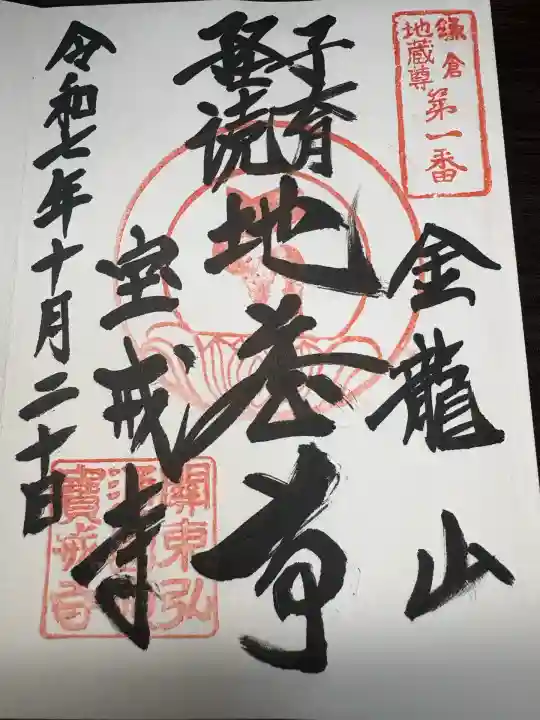 鎌倉
地蔵尊
第一番
金龍山
子育
経読
地蔵尊
宝戒寺
令和七年十月二十日
關東弘
寶戒寺